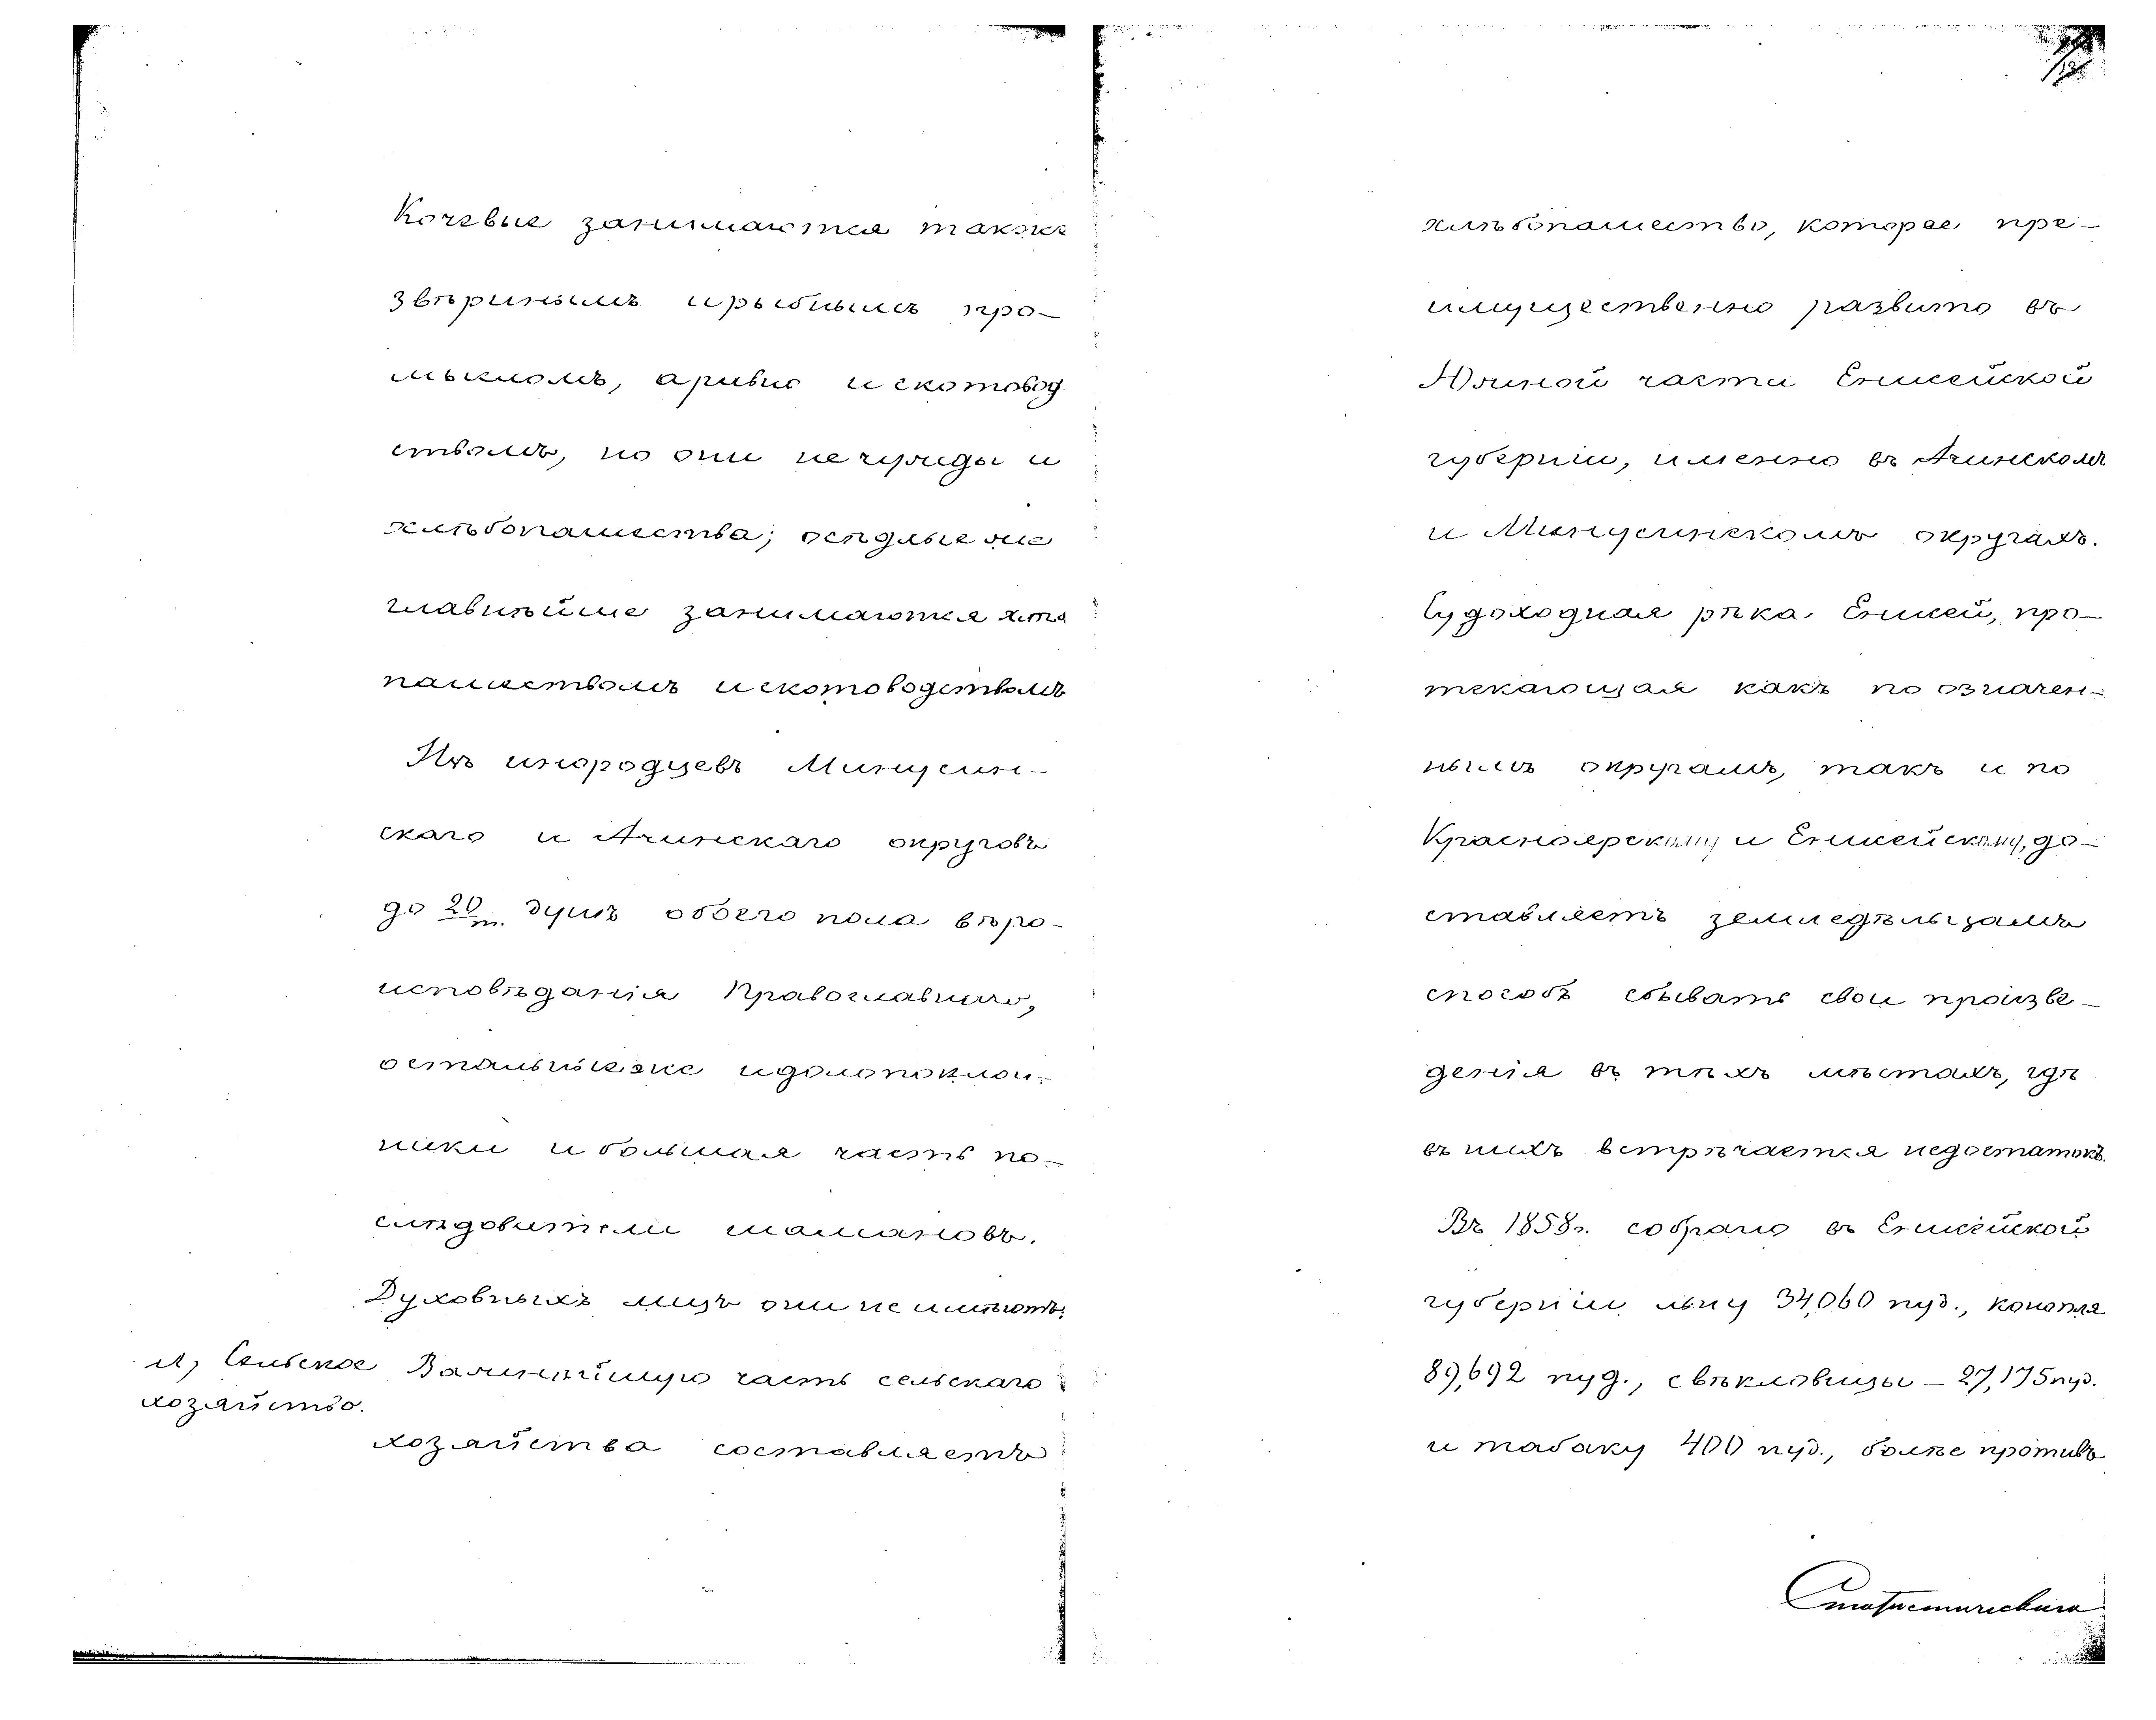 Кочевые занимаются также
звѣринымъ и рыбнымъ про-
мысломъ, а равно и скотовод
ствомъ, но они не чужды и
хлѣбопашества; осѣдлые же
главнѣйше занимаются хлѣбо
пашествомъ и скотоводствомъ
Изъ инородцевъ Минусин-
скаго и Ачинскаго округовъ
до 20 т. душъ обоего пола вѣро-
исповѣданія Православнаго,
остальные же идолопоклон-
ники и большая часть по-
слѣдователи шамановъ.
Духовныхъ лицъ они не имѣютъ.
л, Сельское
хозяйство.
Важнѣйшую часть сельскаго
хозяйства составляетъ
хлѣбопашество, которое пре-
имущественно развито въ
Южной части Енисейской
губерніи, именно въ Ачинскомъ
и Минусинскомъ округахъ.
Судоходная рѣка Енисей, про-
текающая какъ по означен-
нымъ округамъ, такъ и по
Красноярскому и Енисейскому, до-
ставляетъ земледѣльцамъ
способъ сбывать свои произве-
денія въ тѣхъ мѣстахъ, гдѣ
въ нихъ встрѣчается недостатокъ.
Въ 1858 г. собрано въ Енисейской
губерніи льну 34,060 пуд., конопля
89,692 пуд., свѣкловицы - 27,175 пуд.
и табаку 400 пуд., болѣе противъ